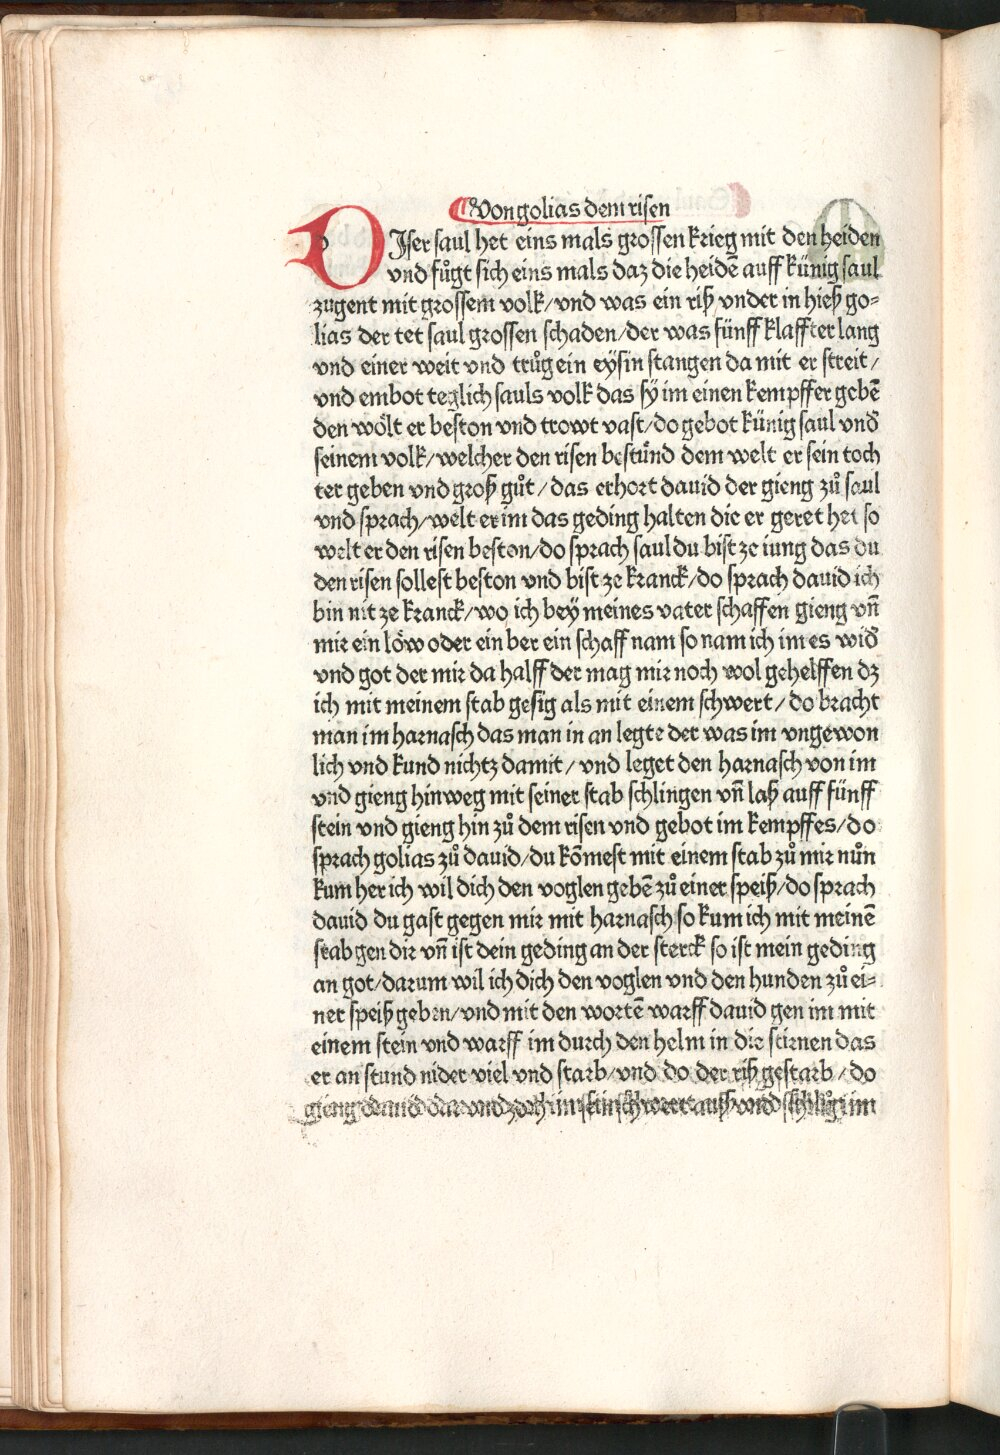 Von golias dem risen
DIser saul het eins mals grossen krieg mit den heiden
vnd fuͦgt sich eins mals daz die heidē auff künig saul
zugent mit grossem volk/vnd was ein riß vnder in hieß go=
lias der tet saul grossen schaden/der was fünff klaffter lang
vnd einer weit vnd truͦg ein eysin stangen da mit er streit/
vnd embot teglich sauls volk das sÿ im einen kempffer gebē
den woͤlt er beston vnd trowt vast/do gebot künig saul vnd̄
seinem volk/welcher den risen bestuͤnd dem welt er sein toch
ter geben vnd groß guͦt/das erhort dauid der gieng zuͦ saul
vnd sprach/welt er im das geding halten die er geret het so
welt er den risen beston/do sprach saul du bist ze iung das du
den risen sollest beston vnd bist ze kranck/do sprach dauid ich
bin nit ze kranck/wo ich bey meines vater schaffen gieng vn̄
mir ein loͤw oder ein ber ein schaff nam so nam ich im es wid̄
vnd got der mir da halff der mag mir noch wol gehelffen dz
ich mit meinem stab gesig als mit einem schwert/do bracht
man im harnasch das man in an legte der was im vngewon
lich vnd kund nichtz damit/vnd leget den harnasch von im
vnd gieng hinweg mit seiner stab schlingen vn̄ laß auff fünff
stein vnd gieng hin zuͦ dem risen vnd gebot im kempffes/do
sprach golias zuͦ dauid/du kōmest mit einem stab zuͦ mir nuͦn
kum her ich wil dich den voglen gebē zuͦ einer speiß/do sprach
dauid du gast gegen mir mit harnasch so kum ich mit meinē
stab gen dir vn̄ ist dein geding an der sterck so ist mein geding
an got/darum wil ich dich den voglen vnd den hunden zuͦ ei=
ner speiß geben/vnd mit den wortē warff dauid gen im mit
einem stein vnd warff im durch den helm in die stirnen das
er an stund nider viel vnd starb/vnd do der riß gestarb/do
gieng dauid dar vnd zoch im sein schwert auß vnd schluͦg im